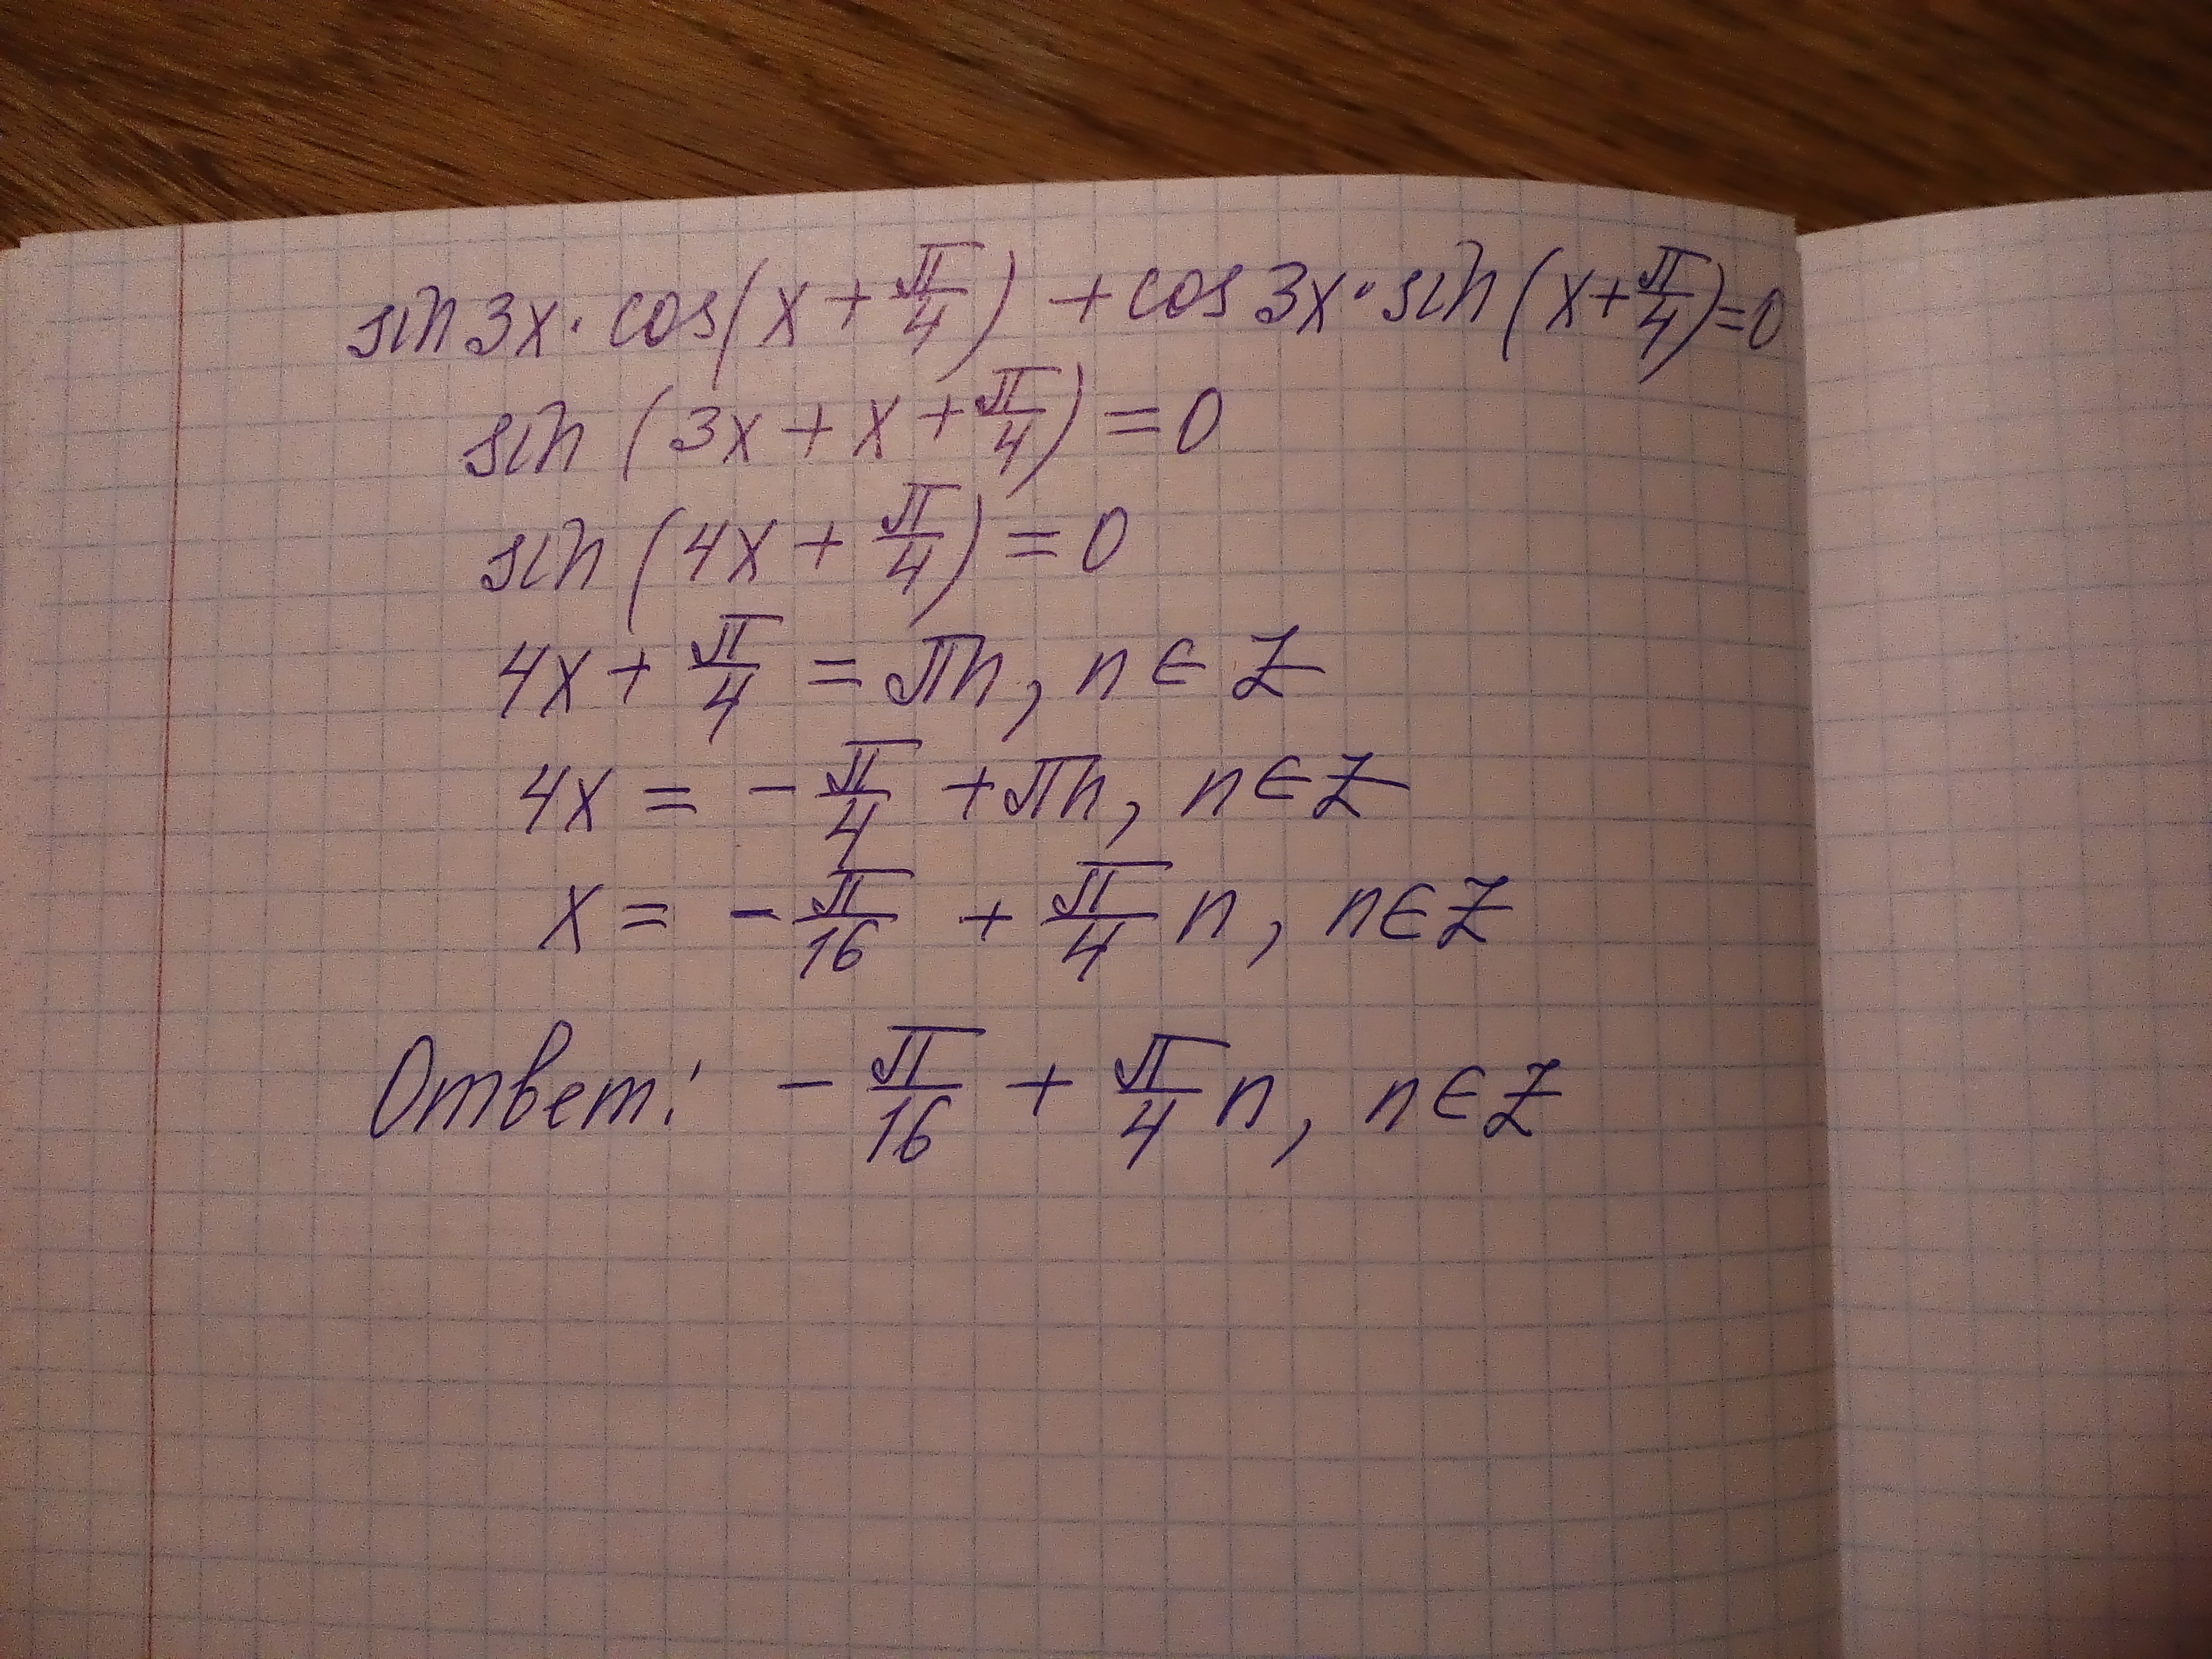 sin 3x · cos(x + π/4) + cos 3x · sin(x + π/4) = 0
sin (3x + x + π/4) = 0
sin (4x + π/4) = 0
4x + π/4 = πn, n ∈ Z
4x = - π/4 + πn, n ∈ Z
x = - π/16 + π/4 n, n ∈ Z
Ответ: - π/16 + π/4 n, n ∈ Z